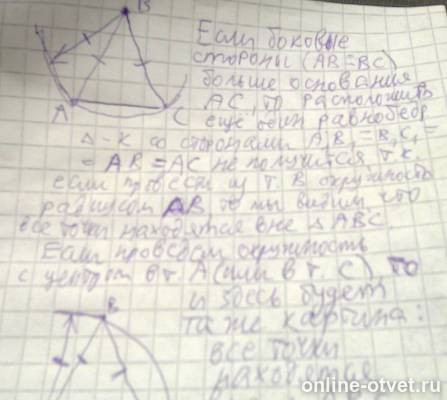 B
Если боковые
стороны (AB=BC)
больше основания
AC, то расположить
A C ещё один равнобедр
Δ-к со сторонами A₁B₁=B₁C₁=
=AB=AC не получится, т.к.
если провести из т. В окружность
радиусом AB то мы видим что
все точки находятся вне Δ ABC.
Если проведём окружность
с центром в т. A (или в т. C), то
и здесь будет
B та же картина:
все точки
находятся
online-otvet.ru